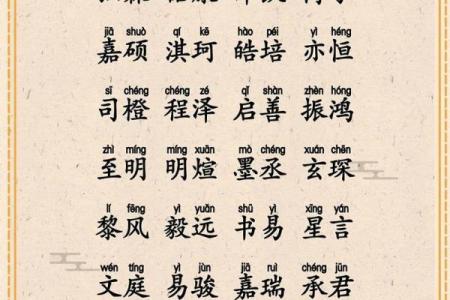 jiā shuò qí kē hào péi yì héng
嘉硕 淇珂 皓培 亦恒
sī chéng chéng zé qǐ shàn zhèn hóng
司橙 程泽 启善 振鸿
zhì míng míng xuān mò chéng xuán chēn
至明 明煊 墨丞 玄琛
lí fēng yì yuǎn shū yì xīng yán
黎风 毅远 书易 星言
wén tíng yì jùn jiā ruì chéng jūn
文庭 易骏 嘉瑞 承君